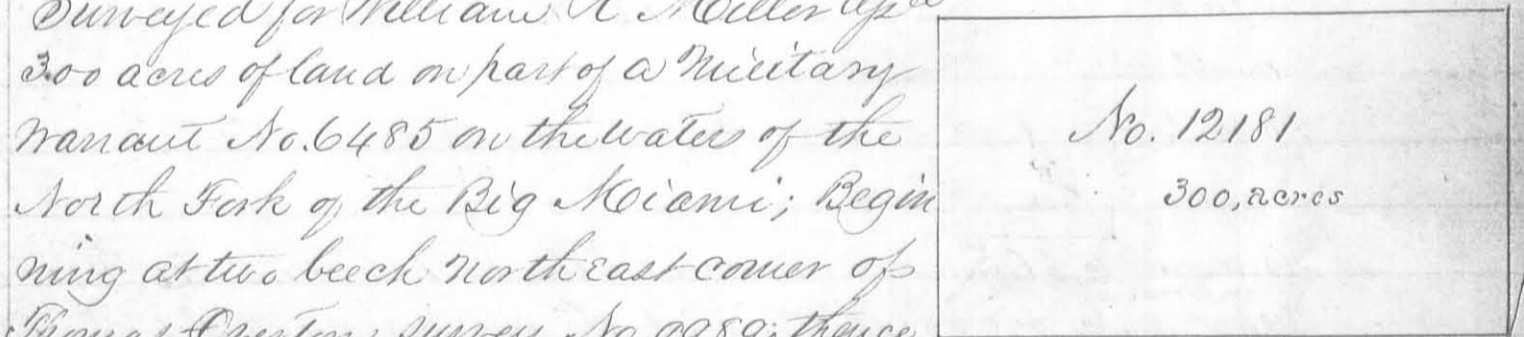 Surveyed for William A Miller
300 acres of land on part of a Military
Warrant No. 6485 on the waters of the
North Fork of the Big Miami; Begin
ning at two beech north east corner of
Thomas Overtons survey No. 9989; thence
No. 12181
300, acres